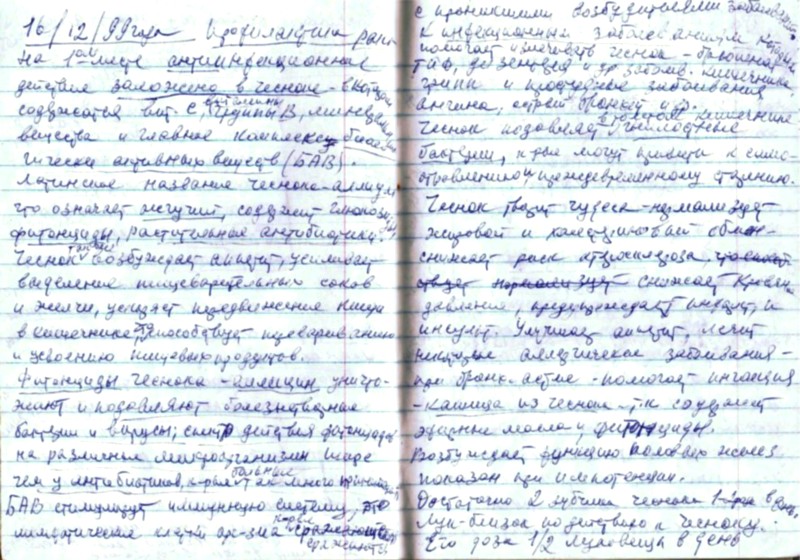 16/12/99 года Профилактика рака
На 1ом месте антиинфекционное
действие заложено в чесноке - в котором
содержатся вит. С, витамины группы В, минеральн.
вещества и главное комплекс биоло-
гически активных веществ (БАВ).
Латинское название чеснока - аллиум
что означает жгучий, содержит гликозиды
фитонциды, растительные антибиотики.
Чеснок также возбуждает аппетит, усиливает
выделение пищеварительных соков
и желчи, ускоряет передвижение пищи
в кишечнике, способствует пищеварению
и усвоению пищевых продуктов.
Фитонциды чеснока - аллицин уничто-
жают и подавляют болезнетворные
бактерии и вирусы; спектр действия фитонцидов
на различные микроорганизмы шире
чем у антибиотиков, к-рые так много
БАВ стимулируют иммунную систему, это
лимфатические клетки орг-зма к-рые сражаются
сражаются
с проникшими возбудителями заболеван.
К инфекционным заболеваниям которые
помогает излечивать чеснок - брюшной
тиф, дизентерия и др. заболев. кишечника,
грипп и простудные заболевания
ангина, острый бронхит и др.
Чеснок подавляет в толстом кишечнике гнилостные
бактерии, к-рые могут привести к само-
отравлению и преждевременному старению.
Чеснок творит чудеса - нормализует
жировой и холестериновый обмен -
снижает риск атеросклероза,
снижает кровян.
давление, предупреждает инфаркт, и
инсульт. Улучшает аппетит, лечит
некоторые аллергические заболевания -
при бронх. астме - помогает ингаляция
- кашица из чеснока т.к содержит
эфирные масла и фитонциды.
Возбуждает функцию половых желез
показан при импотенции.
Достаточно 2 зубчика чеснока в день,
Лук - близок по действию к чесноку.
Его доза 1/2 луковицы в день